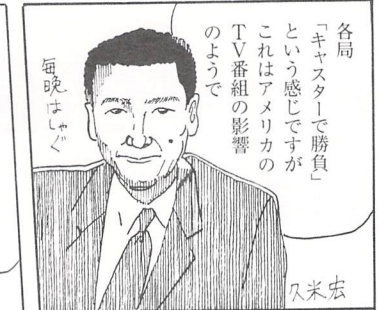 各局
「キャスターで勝負」
という感じですが
これはアメリカの
TV番組の影響
のようで
毎晩はしゃぐ
久米宏